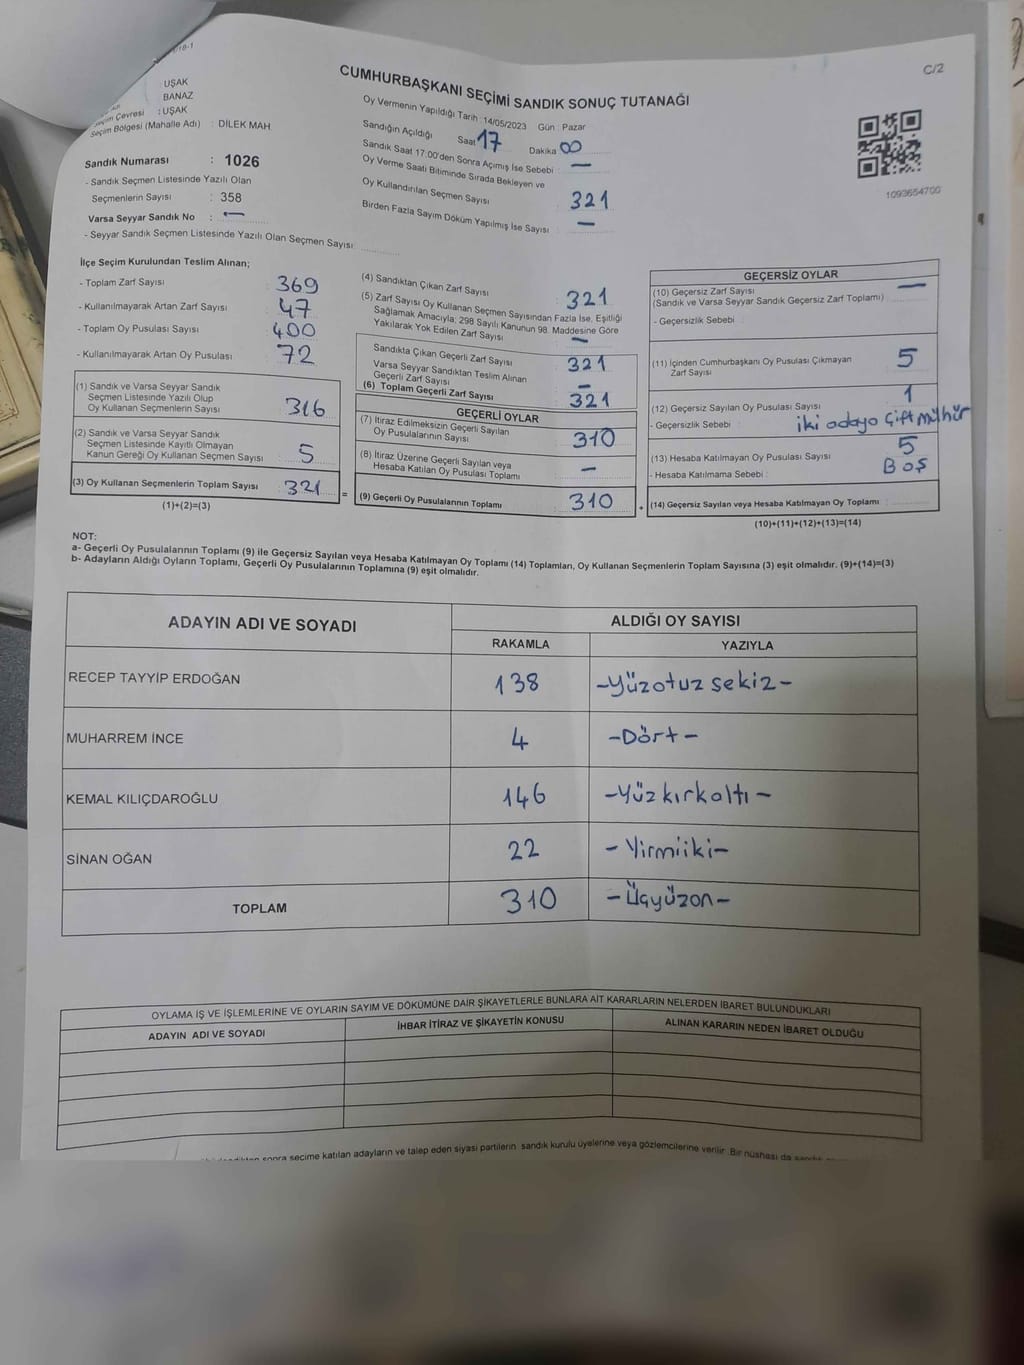 18-1
C/2
CUMHURBAŞKANI SEÇİMİ SANDIK SONUÇ TUTANAĞI
: UŞAK
BANAZ
Seçim Çevresi : UŞAK
Seçim Bölgesi (Mahalle Adı) : DİLEK MAH.
Sandık Numarası : 1026
- Sandık Seçmen Listesinde Yazılı Olan
Seçmenlerin Sayısı : 358
Varsa Seyyar Sandık No : —
- Seyyar Sandık Seçmen Listesinde Yazılı Olan Seçmen Sayısı:
Oy Vermenin Yapıldığı Tarih :14/05/2023 Gün : Pazar
Sandığın Açıldığı Saat 17 Dakika 00
Sandık Saat 17:00'den Sonra Açımış İse Sebebi : —
Oy Verme Saati Bitiminde Sırada Bekleyen ve
Oy Kullandırılan Seçmen Sayısı 321
Birden Fazla Sayım Döküm Yapılmış İse Sayısı : —
1093654700
İlçe Seçim Kurulundan Teslim Alınan;
- Toplam Zarf Sayısı : 369
- Kullanılmayarak Artan Zarf Sayısı : 47
- Toplam Oy Pusulası Sayısı : 400
- Kullanılmayarak Artan Oy Pusulası : 72
(1) Sandık ve Varsa Seyyar Sandık
Seçmen Listesinde Yazılı Olup
Oy Kullanan Seçmenlerin Sayısı : 316
(2) Sandık ve Varsa Seyyar Sandık
Seçmen Listesinde Kayıtlı Olmayan
Kanun Gereği Oy Kullanan Seçmen Sayısı : 5
(3) Oy Kullanan Seçmenlerin Toplam Sayısı : 321 =
(1)+(2)=(3)
(4) Sandıktan Çıkan Zarf Sayısı : 321
(5) Zarf Sayısı Oy Kullanan Seçmen Sayısından Fazla İse, Eşitliği
Sağlamak Amacıyla; 298 Sayılı Kanunun 98. Maddesine Göre
Yakılarak Yok Edilen Zarf Sayısı : —
Sandıkta Çıkan Geçerli Zarf Sayısı : 321
Varsa Seyyar Sandıktan Teslim Alınan
Geçerli Zarf Sayısı : —
(6) Toplam Geçerli Zarf Sayısı : 321
GEÇERLİ OYLAR
(7) İtiraz Edilmeksizin Geçerli Sayılan
Oy Pusulalarının Sayısı : 310
(8) İtiraz Üzerine Geçerli Sayılan veya
Hesaba Katılan Oy Pusulası Toplamı : —
(9) Geçerli Oy Pusulalarının Toplamı : 310 +
GEÇERSİZ OYLAR
(10) Geçersiz Zarf Sayısı : —
(Sandık ve Varsa Seyyar Sandık Geçersiz Zarf Toplamı)
- Geçersizlik Sebebi :
(11) İçinden Cumhurbaşkanı Oy Pusulası Çıkmayan
Zarf Sayısı : 5
(12) Geçersiz Sayılan Oy Pusulası Sayısı : 1
- Geçersizlik Sebebi : iki adaya çift mühür
(13) Hesaba Katılmayan Oy Pusulası Sayısı : 5
- Hesaba Katılmama Sebebi : Boş
(14) Geçersiz Sayılan veya Hesaba Katılmayan Oy Toplamı :
(10)+(11)+(12)+(13)=(14)
NOT:
a- Geçerli Oy Pusulalarının Toplamı (9) ile Geçersiz Sayılan veya Hesaba Katılmayan Oy Toplamı (14) Toplamları, Oy Kullanan Seçmenlerin Toplam Sayısına (3) eşit olmalıdır. (9)+(14)=(3)
b- Adayların Aldığı Oyların Toplamı, Geçerli Oy Pusulalarının Toplamına (9) eşit olmalıdır.
ADAYIN ADI VE SOYADI ALDIĞI OY SAYISI
RAKAMLA YAZIYLA
RECEP TAYYİP ERDOĞAN 138 -Yüzotuz sekiz-
MUHARREM İNCE 4 -Dört-
KEMAL KILIÇDAROĞLU 146 -Yüzkırkaltı-
SİNAN OĞAN 22 -Yirmiiki-
TOPLAM 310 -Üçyüzon-
OYLAMA İŞ VE İŞLEMLERİNE VE OYLARIN SAYIM VE DÖKÜMÜNE DAİR ŞİKAYETLERLE BUNLARA AİT KARARLARIN NELERDEN İBARET BULUNDUKLARI
ADAYIN ADI VE SOYADI İHBAR İTİRAZ VE ŞİKAYETİN KONUSU ALINAN KARARIN NEDEN İBARET OLDUĞU
sonra seçime katılan adayların ve talep eden siyasi partilerin sandık kurulu üyelerine veya gözlemcilerine verilir. Bir nüshası da